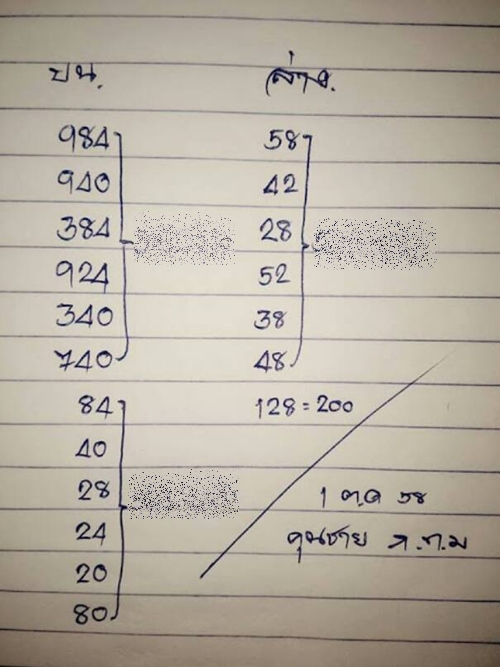 บน.
984
940
384
924
340
740
84
40
28
24
20
80
ล่าง.
58
42
28
52
38
48
128=200
1 ต.ค 58
คุณชาย ก.ท.ม